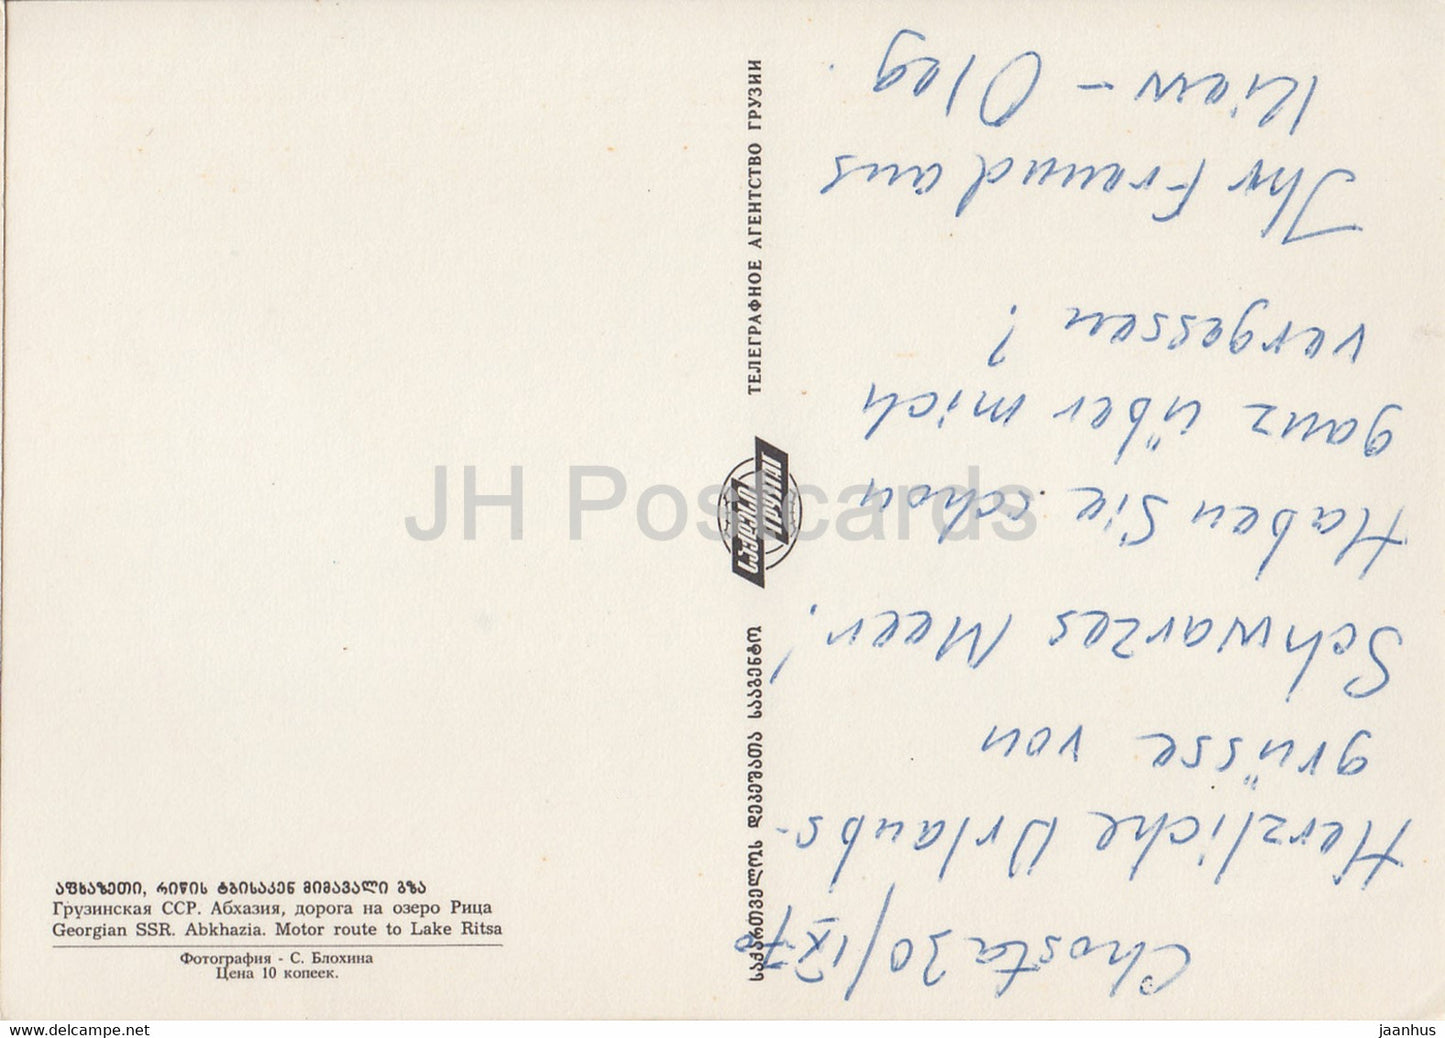 Chosta 30/IX 70
Herzliche Urlaubs-
grüsse von
Schwarzes Meer!
Haben Sie schon
ganz über mich
vergessen?
Ihr Freund aus
Kiew - Oleg.
ТЕЛЕГРАФНОЕ АГЕНТСТВО ГРУЗИИ
საქდესი
ГРУЗТАГ
საქართველოს დეპეშათა სააგენტო
აფხაზეთი, რიწის ტბისაკენ მიმავალი გზა
Грузинская ССР. Абхазия, дорога на озеро Рица
Georgian SSR. Abkhazia. Motor route to Lake Ritsa
Фотография - С. Блохина
Цена 10 копеек.
JH Postcards
www.delcampe.net
jaanhus